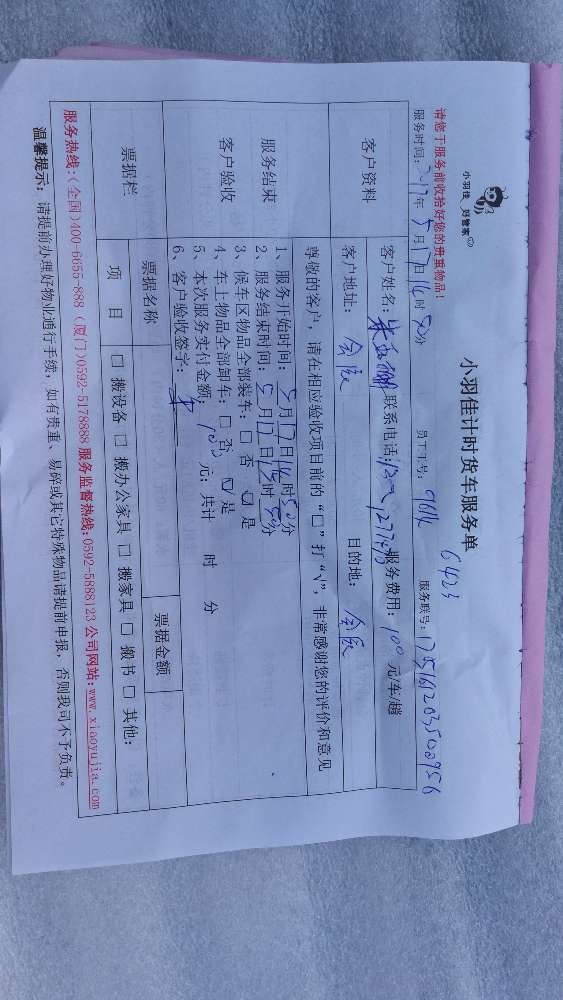 小羽佳 好管家
小羽佳计时货车服务单
6423
请您于服务前收拾好您的贵重物品！
服务时间：2017年5月17日16时50分 员工工号： 服务联号：
客户资料
客户姓名： 联系电话： 服务费用：100元/车/趟
客户地址： 目的地：
尊敬的客户，请在相应验收项目前的“□”打“√”，非常感谢您的评价和意见
服务结束
客户验收
1、服务开始时间：5月17日16时50分
2、服务结束时间：5月17日 时50分
3、候车区物品全部装车：□ 否 ☑ 是
4、车上物品全部卸车：□ 否 ☑ 是
5、本次服务实付金额：100元；共计 时 分
6、客户验收签字：
票据栏
票据名称 票据金额
项 目 □ 搬设备 □ 搬办公家具 □ 搬家具 □ 搬书 □ 其他：
服务热线：（全国）400-6655-888（厦门）0592-5178888 服务监督热线：0592-5888123 公司网站：www.xiaoyujia.com
温馨提示： 请提前办理好物业通行手续，如有贵重、易碎或其它特殊物品请提前申报，否则我司不予负责。